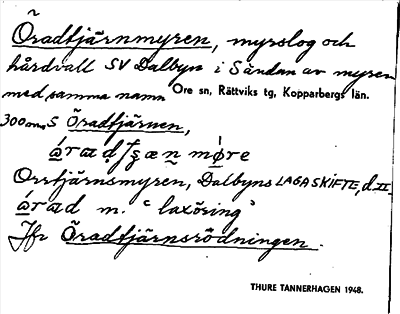 Öradtjärnmyren, myrslog och
hårdvall SV Dalbyn i Sändan av myren
med samma namn Ore sn, Rättviks tg, Kopparbergs län.
300 m S Öradtjärnen,
Orrtjärnsmyren, Dalbyns LAGA SKIFTE, d. II.
årad m. "laxöring"
Jfr Öradtjärnsrödningen.
THURE TANNERHAGEN 1948.